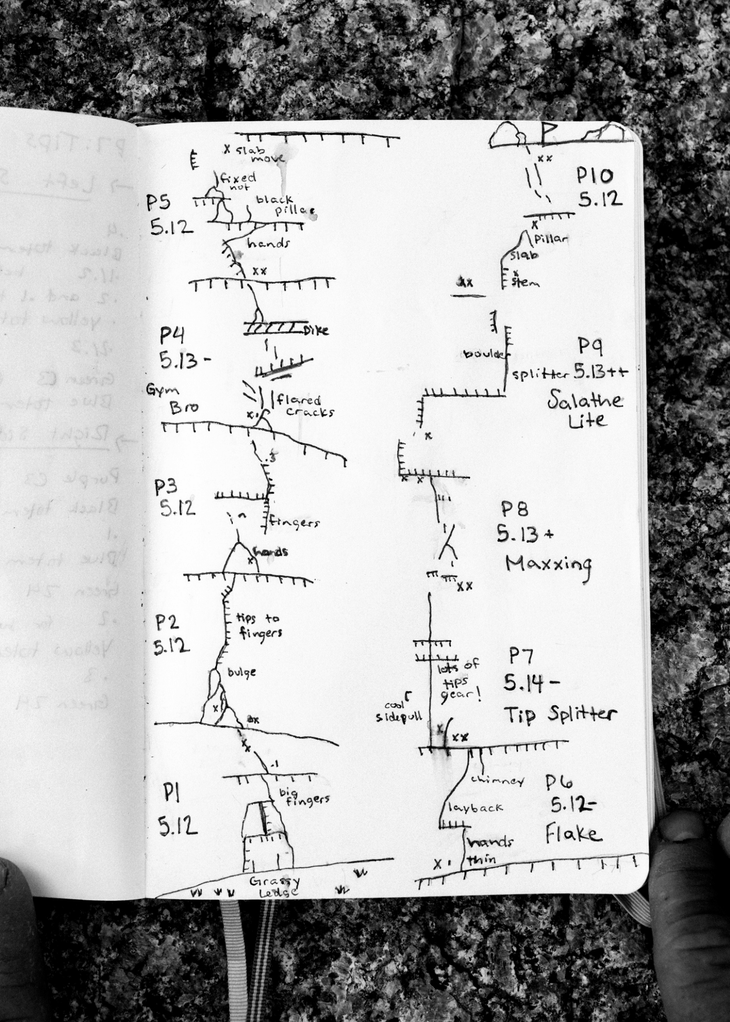 slab
move
fixed
nut
P5
5.12
black
pillar
hands
Dike
P4
5.13-
Gym
Bro
flared
cracks
.3
P3
5.12
fingers
hands
P2
5.12
tips to
fingers
bulge
.1
P1
5.12
big
fingers
Grassy
Ledge
P10
5.12
pillar
slab
stem
P9
5.13++
Salathe
Lite
boulder
splitter
P8
5.13+
Maxxing
P7
5.14-
Tip Splitter
lots of
tips
gear!
cool
sidepull
P6
5.12-
Flake
chimney
layback
hands
thin